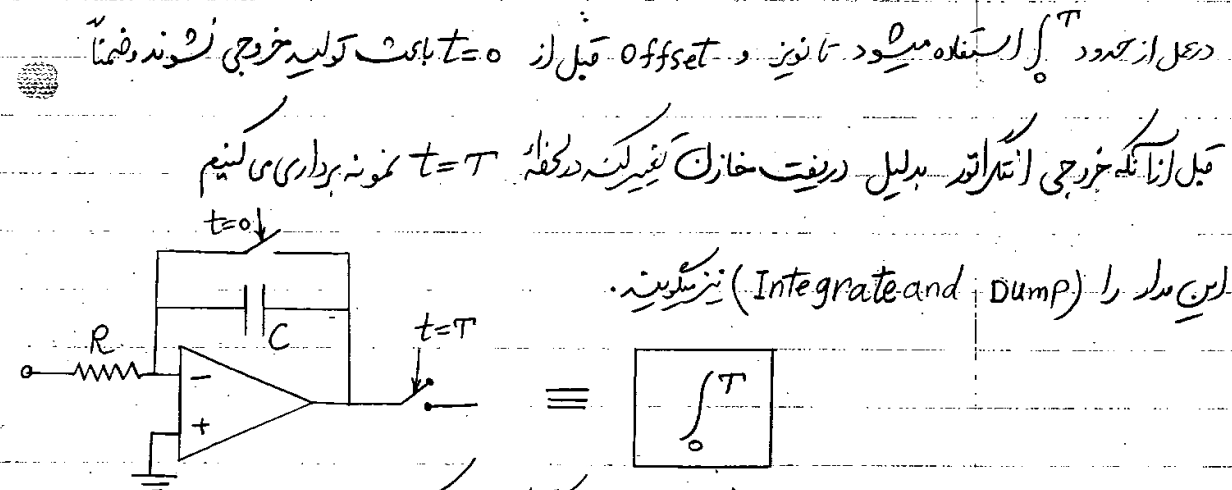 درعمل از حدود ∫₀ᵀ استفاده میشود تا نویز و offset قبل از t=0 باعث تولید خروجی نشوند و ضمناً
قبل از آنکه خروجی انتگراتور بدلیل خازن تغییر کند در لحظهٔ t=T نمونه برداری می کنیم
این مدار را (Integrate and Dump) نیز میگویند.
t=0
C
R
t=T
−
+
≡
∫₀ᵀ